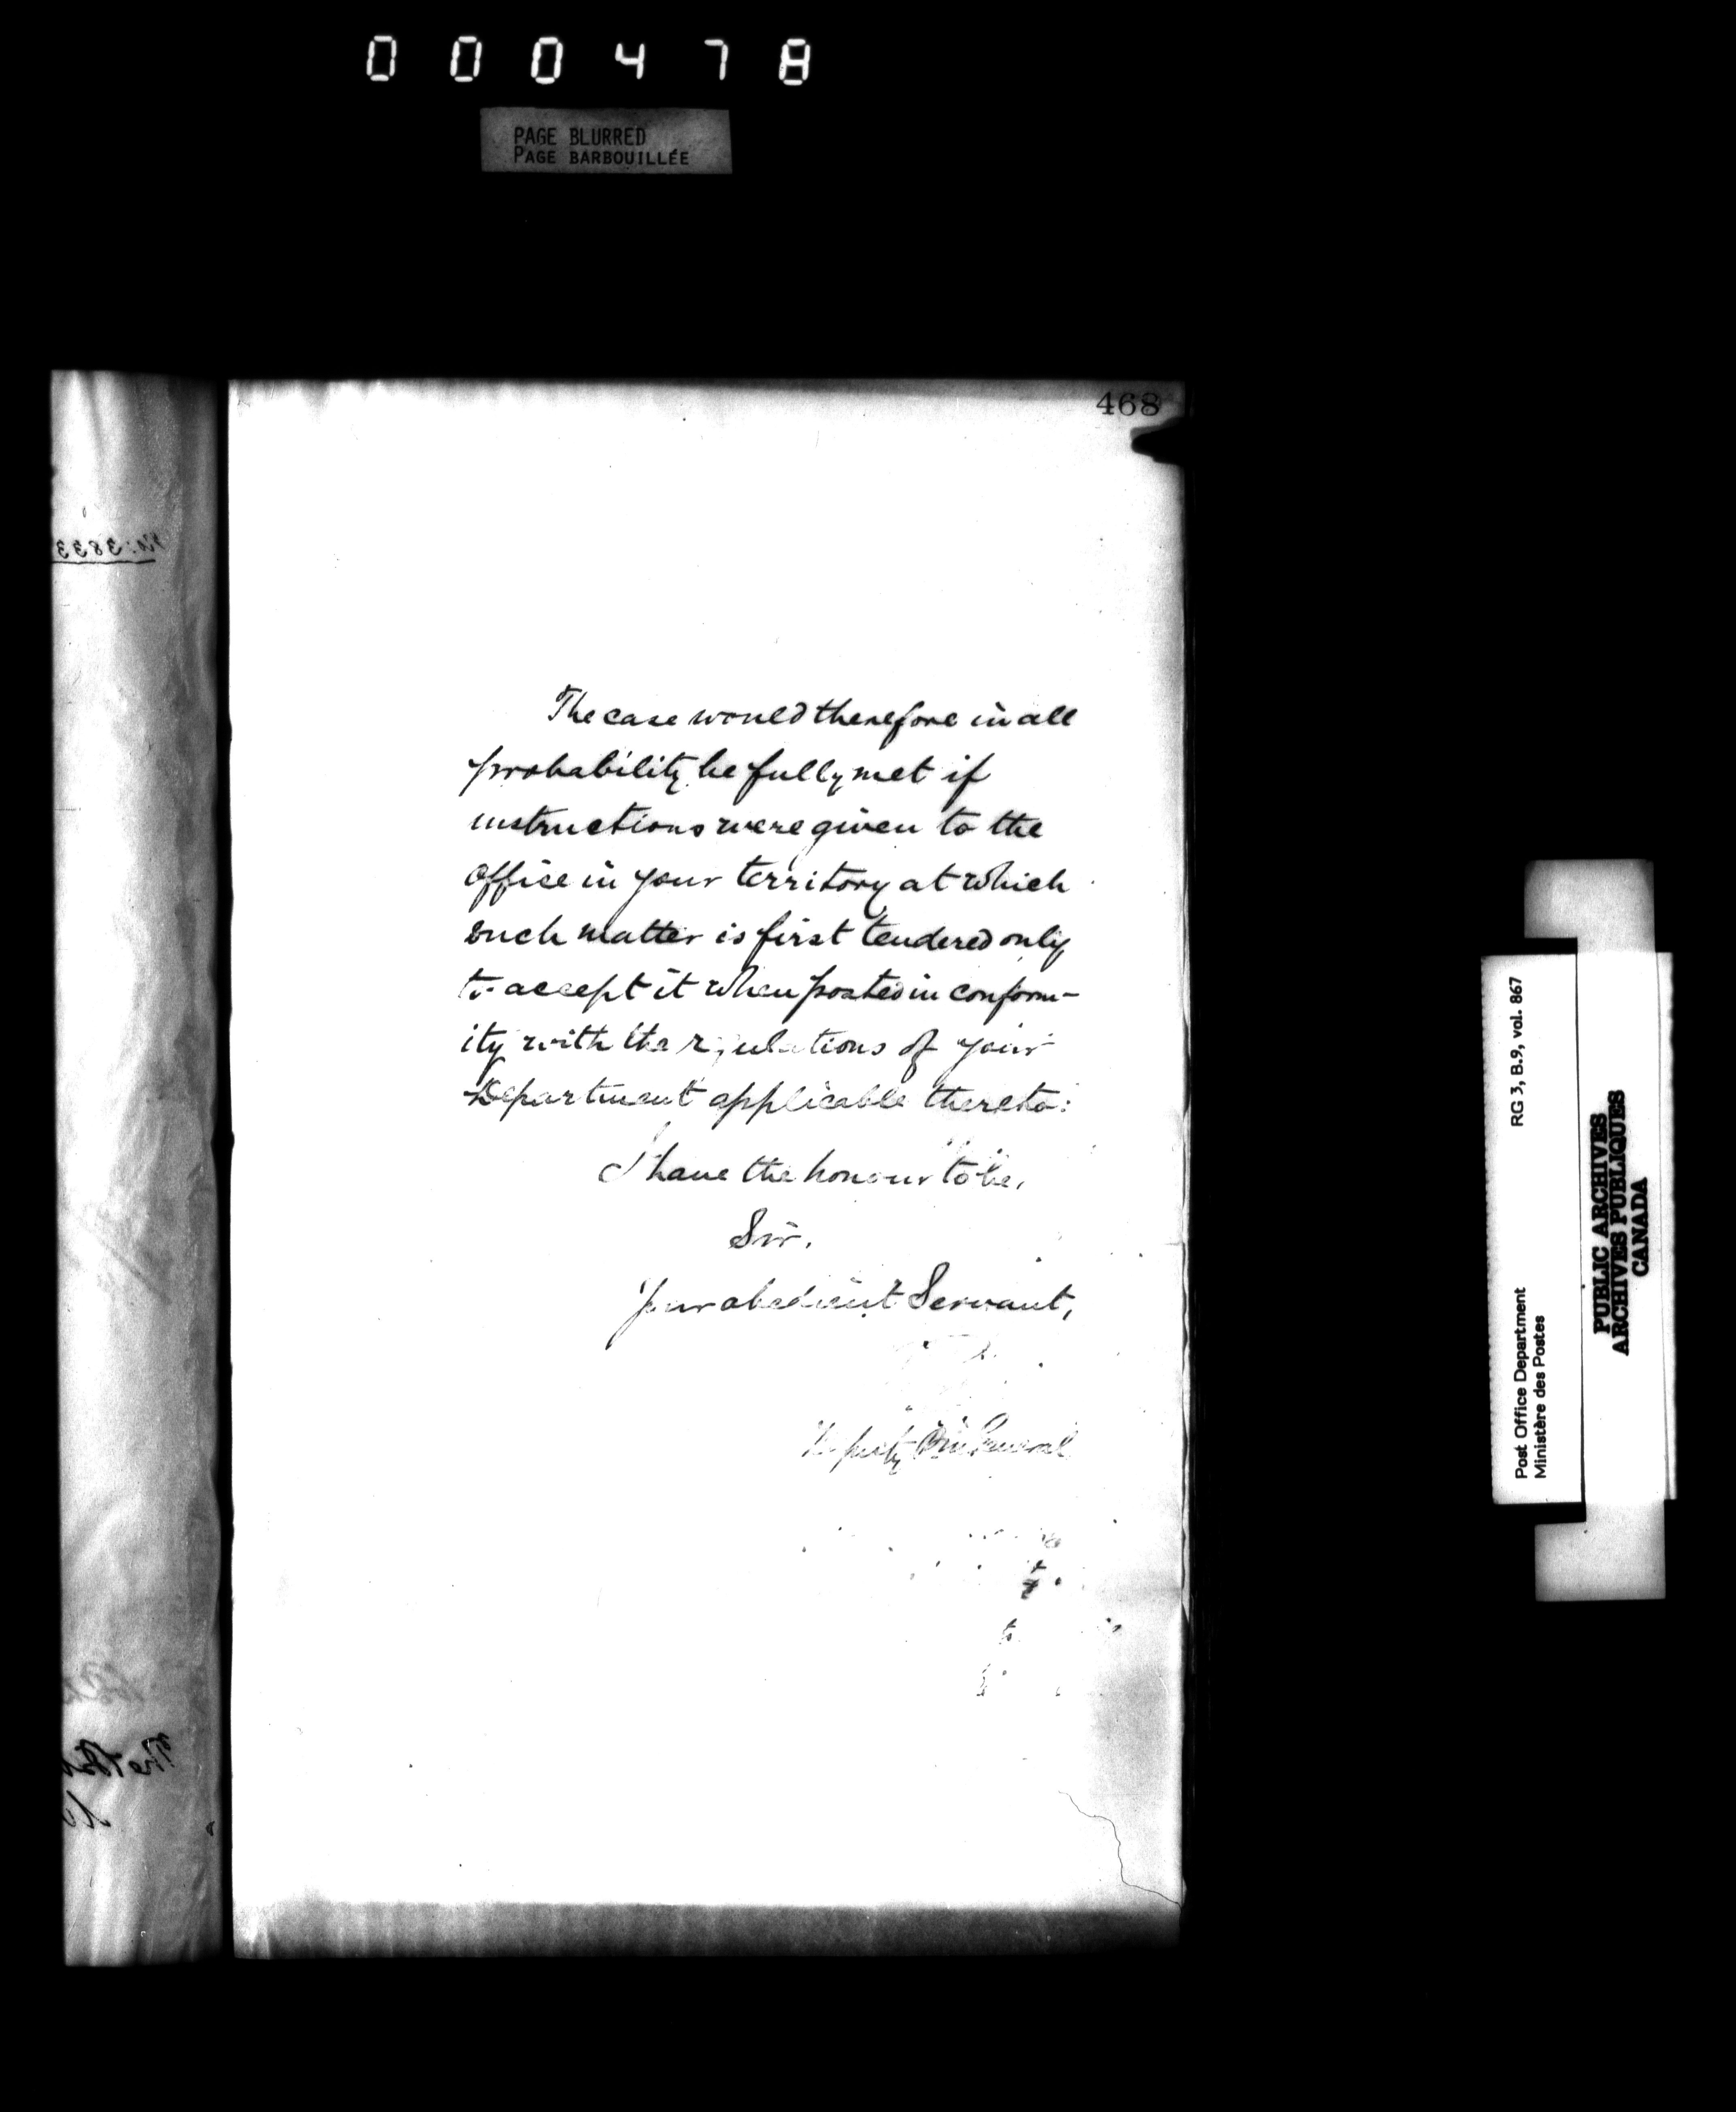 000478
PAGE BLURRED
PAGE BARBOUILLÉE
468
No. 3833
The case would therefore in all
probability be fully met if
instructions were given to the
office in your territory at which
such matter is first tendered only
to accept it when posted in conform-
ity with the regulations of your
Department applicable thereto:
I have the honour to be,
Sir,
Your obedient Servant,
Deputy General
to
The
RG 3, B.9, vol. 867
Post Office Department
Ministère des Postes
PUBLIC ARCHIVES
ARCHIVES PUBLIQUES
CANADA